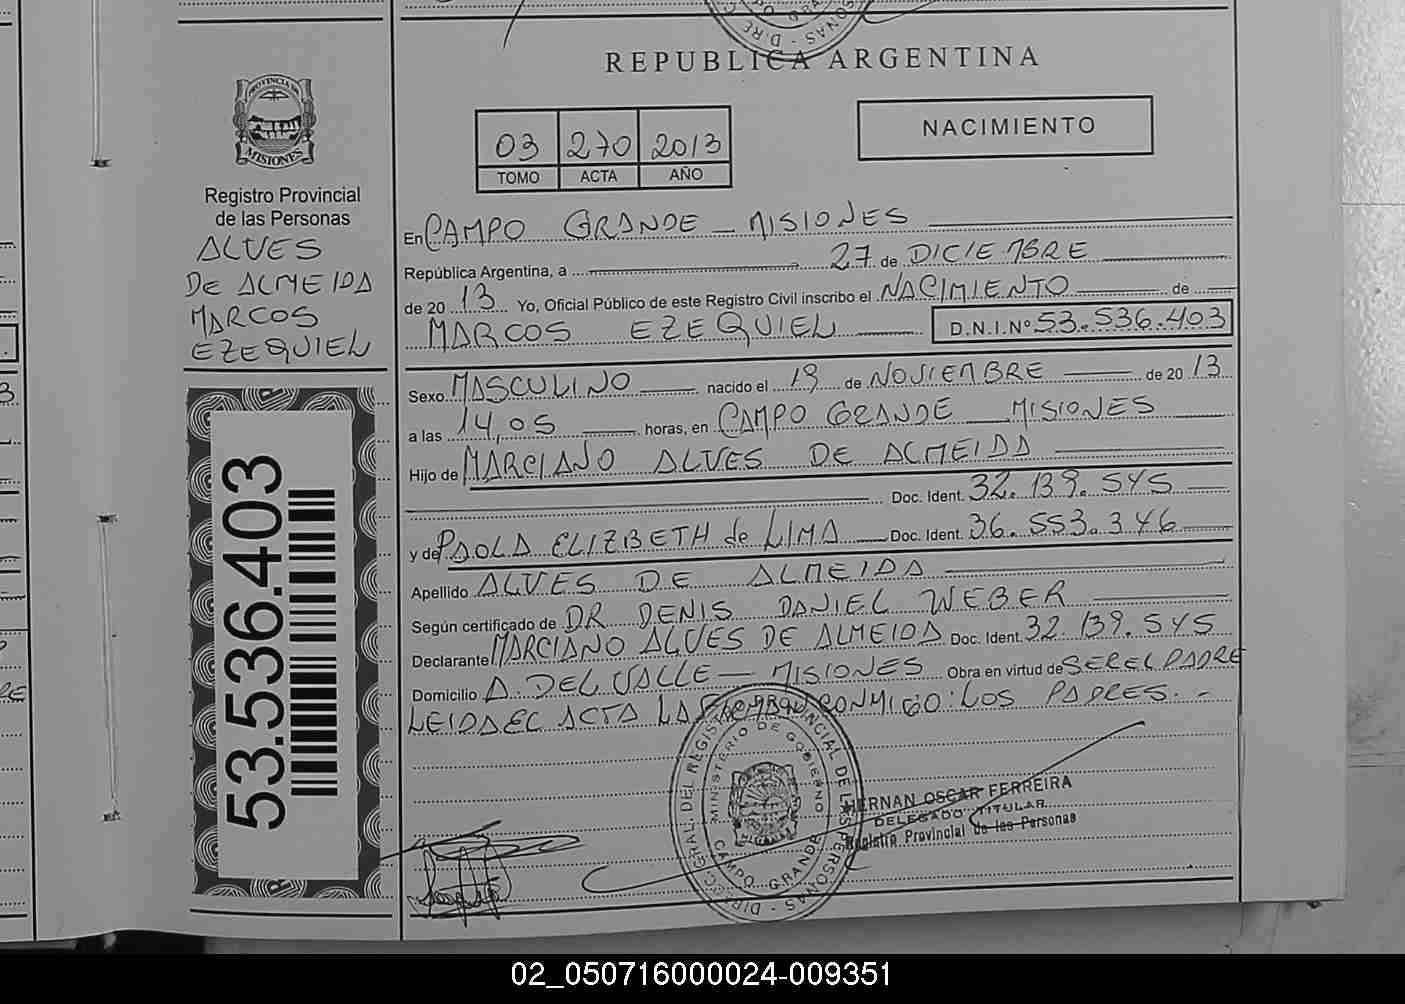 REPUBLICA ARGENTINA
PROVINCIA DE
MISIONES
Registro Provincial
de las Personas
ALVES
DE ALMEIDA
MARCOS
EZEQUIEL
53.536.403
03 270 2013
TOMO ACTA AÑO
NACIMIENTO
En CAMPO GRANDE - MISIONES
República Argentina, a 27 de DICIEMBRE
de 20 13 Yo, Oficial Público de este Registro Civil inscribo el NACIMIENTO de
MARCOS EZEQUIEL D.N.I.Nº 53.536.403
Sexo MASCULINO nacido el 19 de NOVIEMBRE de 20 13
a las 14,05 horas, en CAMPO GRANDE MISIONES
Hijo de MARCIANO ALVES DE ALMEIDA
Doc. Ident. 32.139.545
y de PAOLA ELIZBETH de LIMA Doc. Ident. 36.553.346
Apellido ALVES DE ALMEIDA
Según certificado de DR DENIS DANIEL WEBER
Declarante MARCIANO ALVES DE ALMEIDA Doc. Ident. 32 139.545
Domicilio A. DEL VALLE - MISIONES Obra en virtud de SER EL PADRE
LEIDA EL ACTA LA FIRMAN CONMIGO: LOS PADRES. -
DIREC. GRAL. DEL REGISTRO PROVINCIAL DE LAS PERSONAS
MINISTERIO DE GOBIERNO
CAMPO GRANDE
HERNAN OSCAR FERREIRA
DELEGADO TITULAR
Registro Provincial de las Personas
02_050716000024-009351